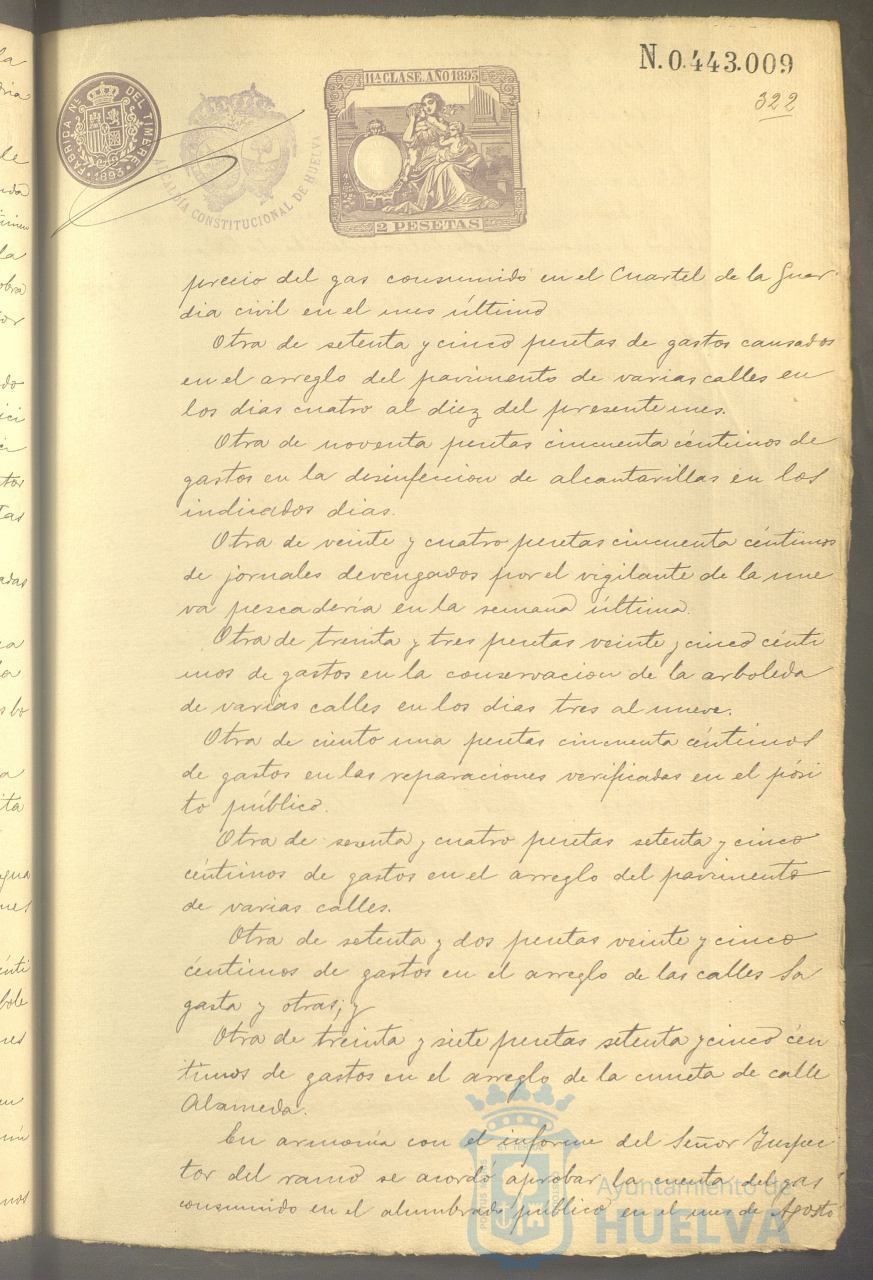 N. 0.443.009
322
FABRICA NL. DEL TIMBRE
1893
ALCALDÍA CONSTITUCIONAL DE HUELVA
11ª CLASE. AÑO 1893
2 PESETAS
precio del gas consumido en el Cuartel de la Guar-
dia civil en el mes último
Otra de setenta y cinco pesetas de gastos causados
en el arreglo del pavimento de varias calles en
los dias cuatro al diez del presente mes.
Otra de noventa pesetas cincuenta céntimos de
gastos en la desinfeccion de alcantarillas en los
indicados dias.
Otra de veinte y cuatro pesetas cincuenta céntimos
de jornales devengados por el vigilante de la nue
va pescadería en la semana última.
Otra de treinta y tres pesetas veinte y cinco cénti
mos de gastos en la conservacion de la arboleda
de varias calles en los dias tres al nueve.
Otra de ciento una pesetas cincuenta céntimos
de gastos en las reparaciones verificadas en el pósi
to público.
Otra de sesenta y cuatro pesetas setenta y cinco
céntimos de gastos en el arreglo del pavimento
de varias calles.
Otra de setenta y dos pesetas veinte y cinco
céntimos de gastos en el arreglo de las calles Sa
gasta y otras; y
Otra de treinta y siete pesetas setenta y cinco cén
timos de gastos en el arreglo de la cuneta de calle
Alameda.
En armonía con el informe del Señor Inspec
tor del ramo se acordó aprobar la cuenta del gas
consumido en el alumbrado público en el mes de Agosto
Ayuntamiento de
HUELVA